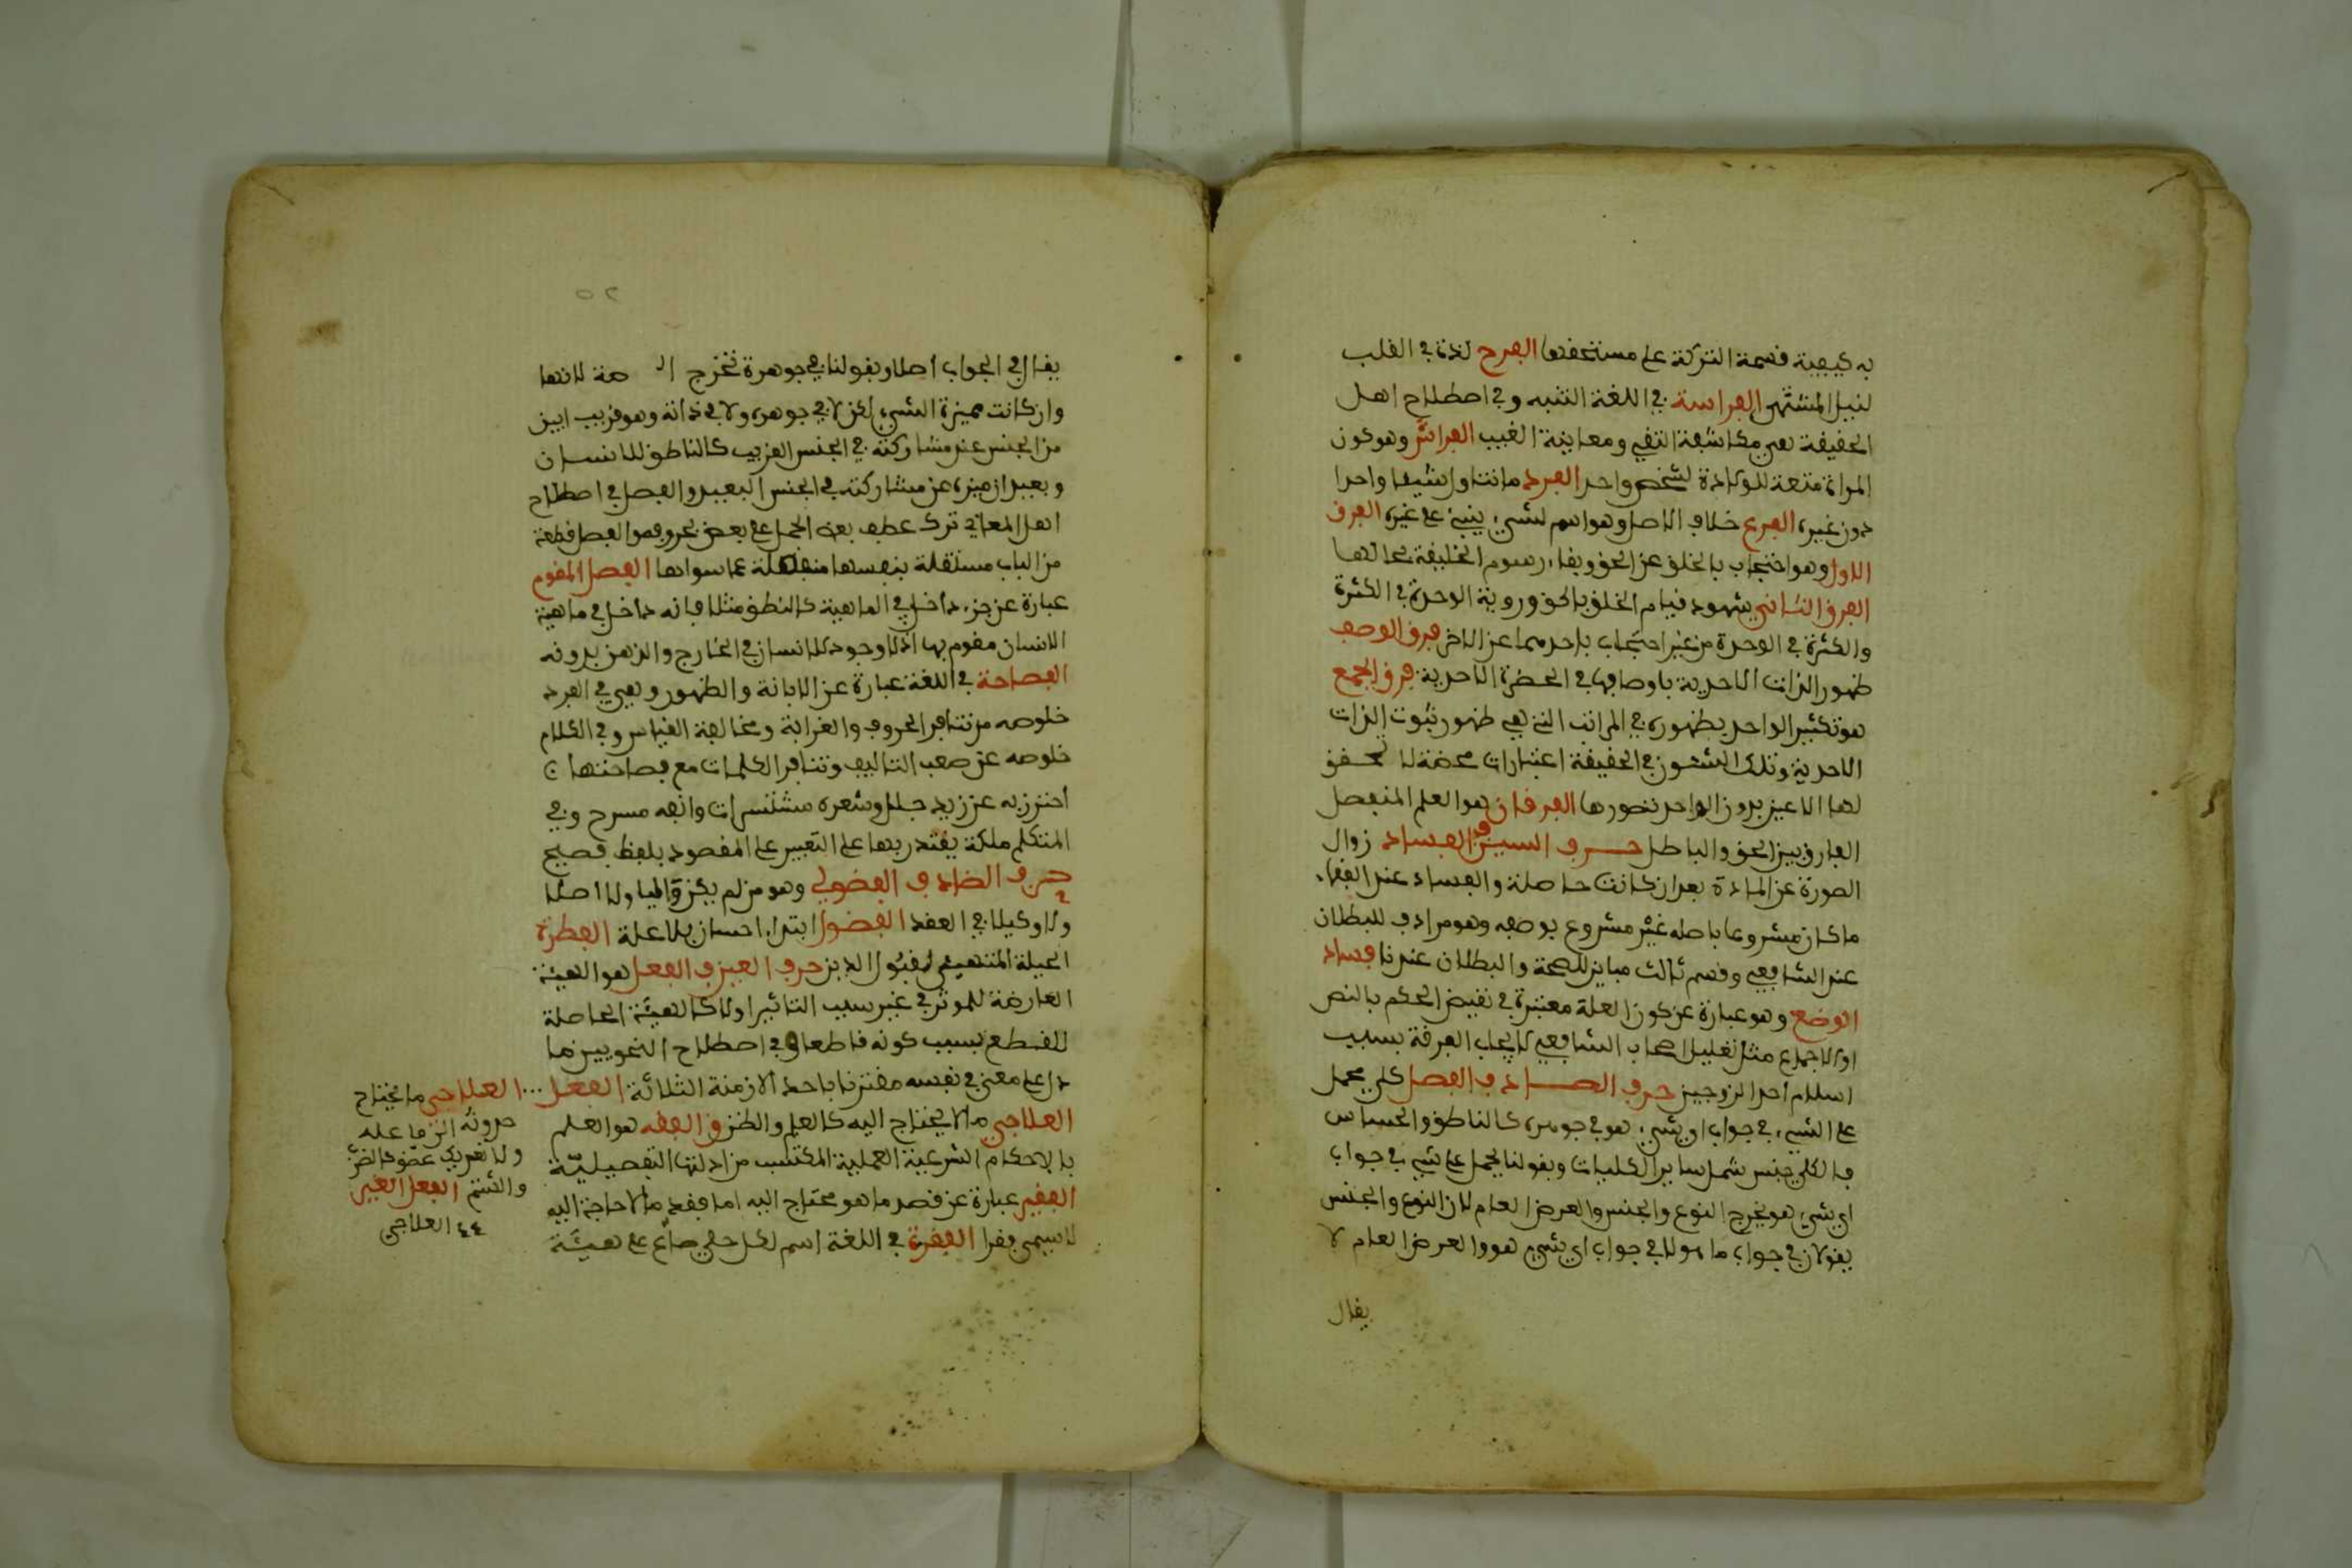 به كيفية قسمة التركة على مستحقها الفرح لذة في القلب
لنيل المشتهى الفراسة في اللغة التثبه وفي اصطلاح اهل
الحقيقة هي مكاشفة النفي ومعاينة الغيب الفراش وهو كون
المراة متعة للولادة لشخص واحد الفرد ما تناول شيئا واحدا
دون غيره الفرع خلاف الاصل وهو اسم لشيء يبنى على غيره الفرق
الاول وهو احتجاب بالخلق عن الحق وبقاء رسوم الخليقة بحالها
الفرق الثاني شهود قيام الخلق بالحق وروية الوحدة في الكثرة
والكثرة في الوحدة من غير احتجاب باحدهما عن الاخر فرق الوصف
ظهور الذات الاحدية باوصافها في الحضرة الاحدية فرق الجمع
هو تكثير الواحد بظهوره في المراتب التي هي ظهور شئون الذات
الاحدية وتلك الشئون في الحقيقة اعتبارات محضة لا تحقق
لها الا عند بروز الواحد بصورها الفرقان هو العلم المنفصل
الفارق بين الحق والباطل حرف السين ف الفساد زوال
الصورة عن المادة بعد ان كانت حاصلة والفساد عند الفقهاء
ما كان مشروعا باصله غير مشروع بوصفه وهو مرادف للبطلان
عند الشافعي وقسم ثالث مباين للصحة والبطلان عندنا فساد
الوضع وهو عبارة عن كون العلة معتبرة في نقيض الحكم بالنص
او الاجماع مثل تعليل اصحاب الشافعي لايجاب الفرقة بسبب
اسلام احد الزوجين حرف الصاد ف الفصل كلي يحمل
على الشيء في جواب اي شيء هو في جوهره كالناطق والحساس
فالكلي جنس شمل ساير الكليات وبقولنا يحمل على شيء في جواب
اي شيء هو يخرج النوع والجنس والعرض العام لان النوع والجنس
يقولان في جواب ما هو لا في جواب اي شيء هو والعرض العام لا
يقال
٥٢
يقال في الجواب اصلا وبقولنا في جوهره تخرج الـ صة لانها
وان كانت مميزة الشيء لكن لا في جوهره ولا في ذاته وهو قريب ان ميز
من الجنس عن مشاركته في الجنس القريب كالناطق للانسان
وبعيد ان ميزه عن مشاركته في الجنس البعيد والفصل في اصطلاح
اهل المعاني ترك عطف بعض الجمل على بعض بحروفه والفصل قطعة
من الباب مستقلة بنفسها منفصلة عما سواها الفصل المقوم
عبارة عن جزء داخل في الماهية كالنطق مثلا فانه داخل في ماهية
الانسان مقوم بها اذ لا وجود للانسان في الخارج والذهن بدونه
الفصاحة في اللغة عبارة عن الابانة والظهور وهي في الفرد
خلوصه من تنافر الحروف والغرابة ومخالفة القياس وفي الكلام
خلوصه عن ضعف التاليف وتنافر الكلمات مع فصاحتها
احترز به عن زيد جلل وشعره مستشزرات وانفه مسرج وفي
المتكلم ملكة يقتدر بها على التعبير عن المقصود بلفظ فصيح
حرف الضاد ف الفضولي وهو من لم يكن وليا ولا اصلا
ولا وكيلا في العقد الفضول ابتداء احسان بلا علة الفطرة
الجبلة المتهيئة لقبول الدين حرف العين ف الفعل هو الهيئة
العارضة للموثر في غيره بسبب التاثير اولا كالهيئة الحاصلة
للقطع بسبب كونه قاطعا وفي اصطلاح النحويين ما
دل على معنى في نفسه مقترنا باحد الازمنة الثلاثة الفعل
العلاجي ما لا يحتاج اليه كالعلم والظن ق الفقه هو العلم
بالاحكام الشرعية العملية المكتسب من ادلتها التفصيلية
الفقير عبارة عن فقد ما هو محتاج اليه اما فقد ما لا حاجة اليه
لا يسمى فقرا الفقرة في اللغة اسم لكل حلي صاغ على هيئة
العلاجي ما يحتاج
حدوثه الى
ولا تحريك عضو كالضرب
والشتم الفعل الغير
العلاجي